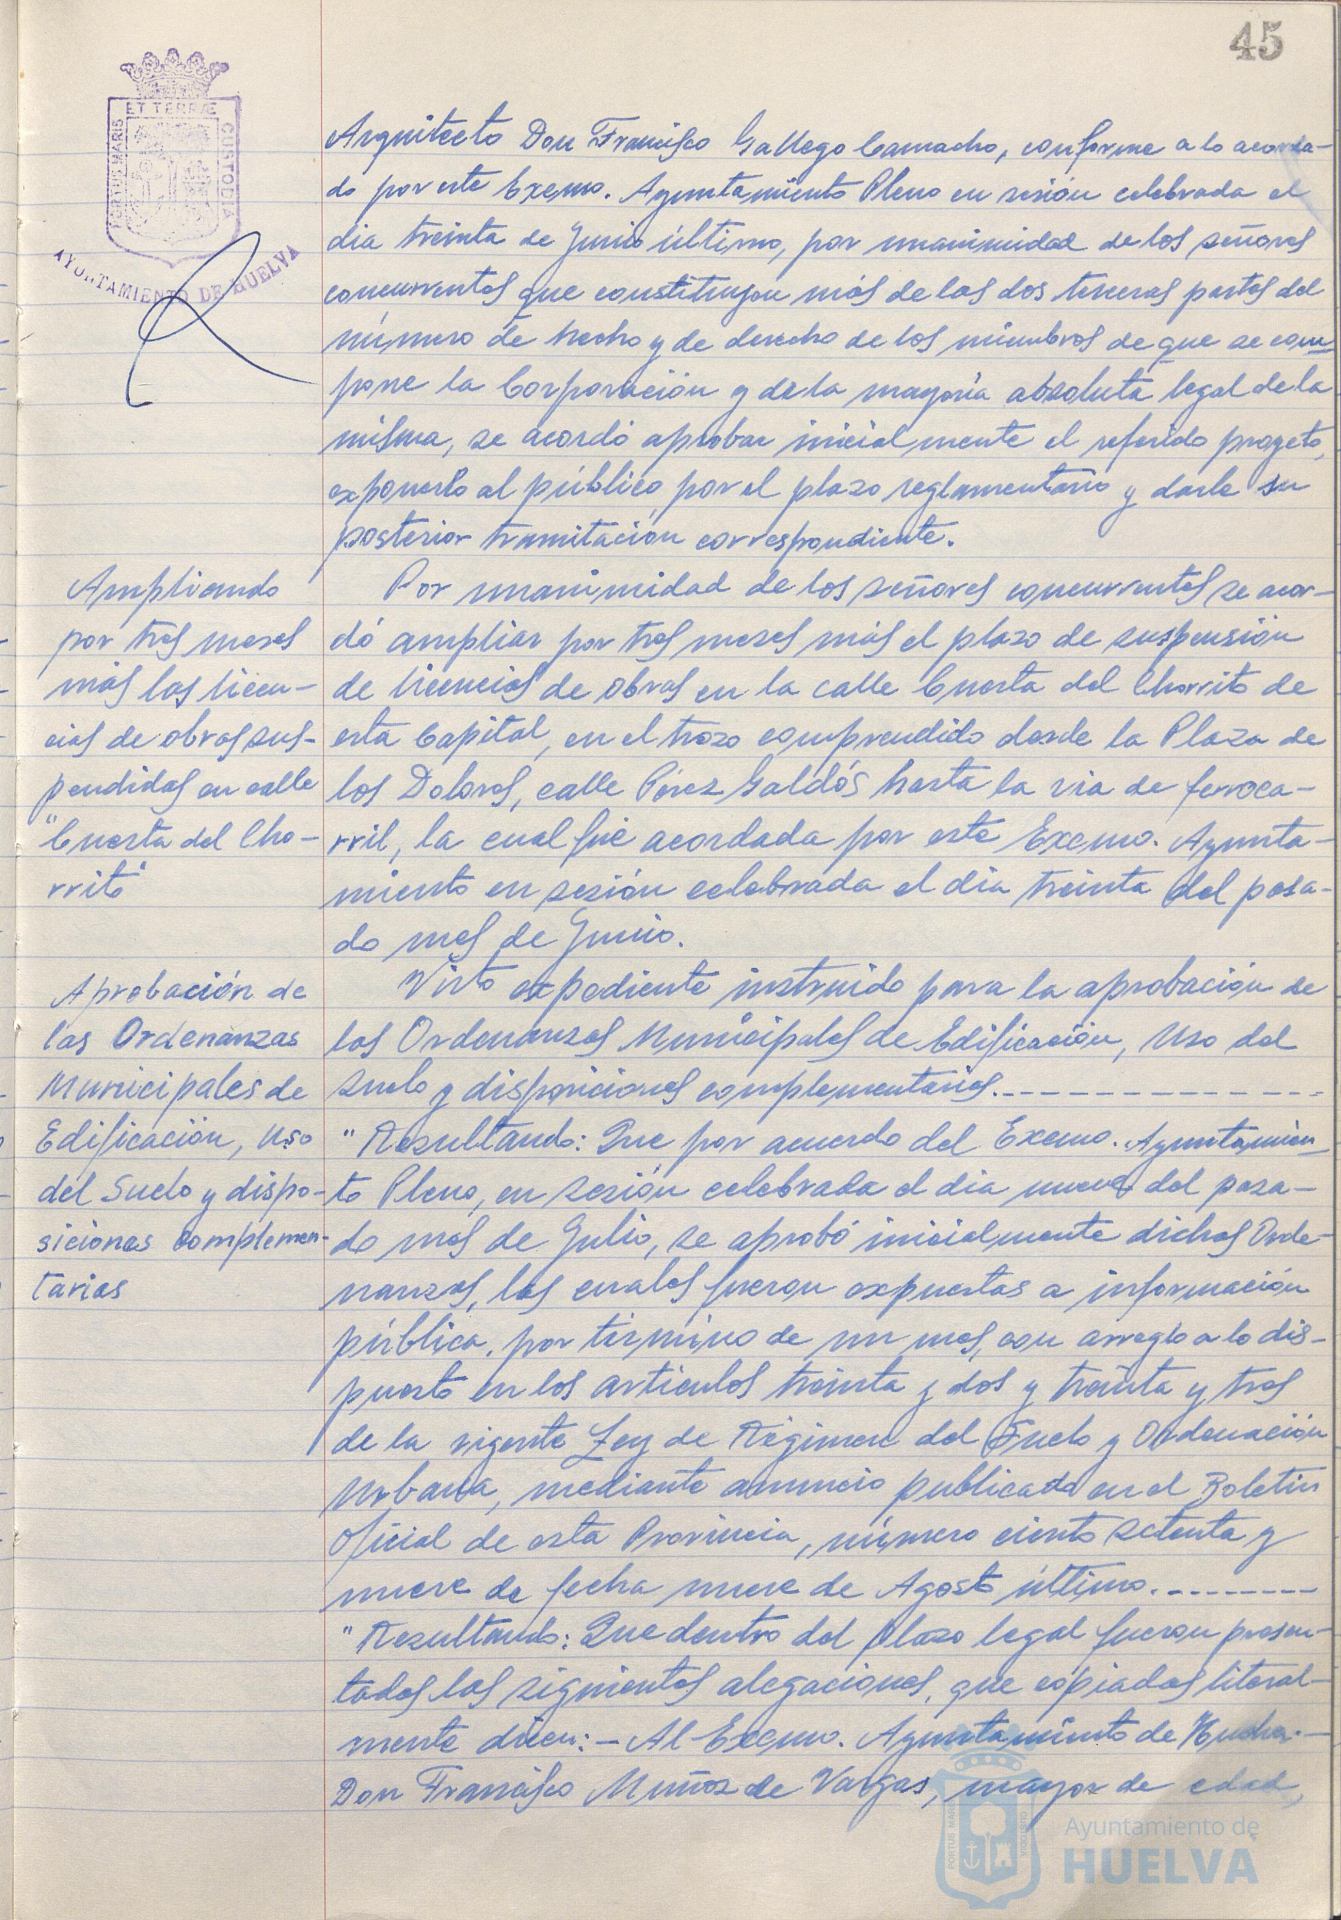 45
PORTUS MARIS ET TERRÆ CUSTODIA
AYUNTAMIENTO DE HUELVA
Arquitecto Don Francisco Gallego Camacho, conforme a lo acorda-
do por este Excmo. Ayuntamiento Pleno en sesión celebrada el
dia treinta de Junio último, por unanimidad de los señores
concurrentes que constituyen más de las dos terceras partes del
número de hecho y de derecho de los miembros de que se com-
pone la Corporación y de la mayoría absoluta legal de la
misma, se acordó aprobar inicialmente el referido proyeto,
exponerlo al público, por el plazo reglamentario y darle su
posterior tramitación correspondiente.
Ampliando
por tres meses
más las licen-
cias de obras sus-
pendidas en calle
"Cuesta del Cho-
rrito"
Por unanimidad de los señores concurrentes se acor-
dó ampliar por tres meses más el plazo de suspensión
de licencias de obras en la calle Cuesta del Chorrito de
esta Capital, en el trozo comprendido desde la Plaza de
los Dolores, calle Pérez Galdós hasta la via de ferroca-
rril, la cual fué acordada por este Excmo. Ayunta-
miento en sesión celebrada el dia treinta del pasa-
do mes de Junio.
Aprobación de
las Ordenanzas
Municipales de
Edificación, uso
del Suelo y dispo-
siciones complemen-
tarias
Visto expediente instruido para la aprobación de
las Ordenanzas Municipales de Edificación, Uso del
Suelo y disposiciones complementarias.
"Resultando: Que por acuerdo del Excmo. Ayuntamien-
to Pleno, en sesión celebrada el dia nueve del pasa-
do mes de Julio, se aprobó inicialmente dichas Orde-
nanzas, las cuales fueron expuestas a información
pública, por término de un mes, con arreglo a lo dis-
puesto en los artículos treinta y dos y treinta y tres
de la vigente Ley de Régimen del Suelo y Ordenación
Urbana, mediante anuncio publicado en el Boletin
Oficial de esta Provincia, número ciento setenta y
nueve de fecha nueve de Agosto último.
"Resultando: Que dentro del plazo legal fueron presen-
tadas las siguientes alegaciones, que copiadas literal-
mente dicen: - Al Excmo. Ayuntamiento de Huelva. -
Don Francisco Muñoz de Vargas, mayor de edad,
Ayuntamiento de
HUELVA